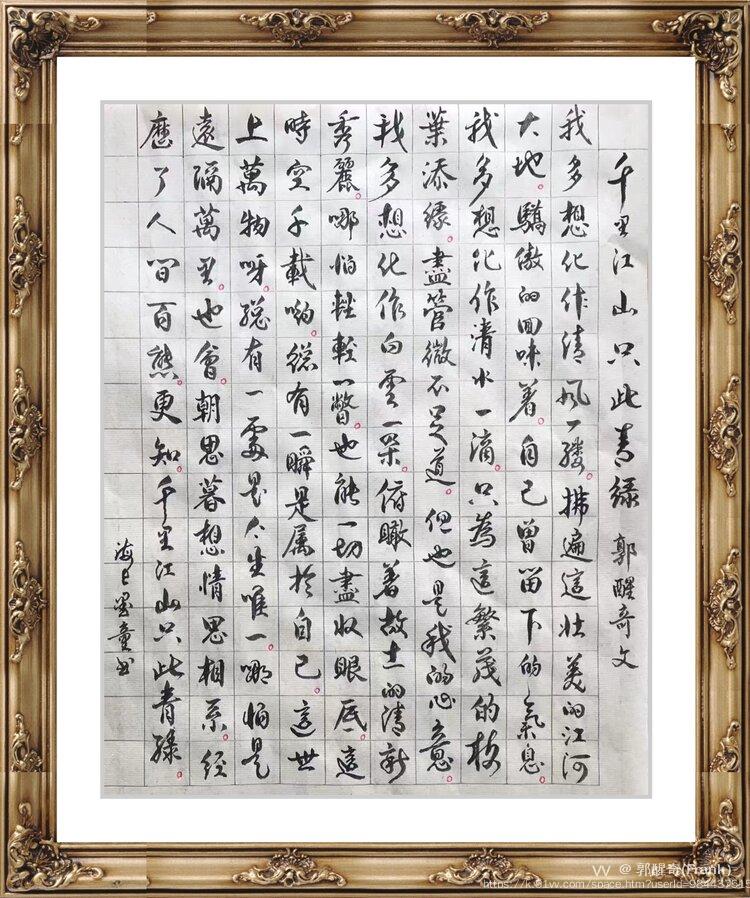 千里江山只此青綠 郭醒奇文
我多想化作清風一縷。拂遍這壯美的江河
大地。驕傲的回味着。自己曾留下的氣息。
我多想化作清水一滴。只為這繁茂的枝
葉添綠。盡管微不足道。但也是我的心意。
我多想化作白雲一朵。俯瞰着故土的清新
秀麗。哪怕輕輕一瞥。也能一切盡收眼底。這
時空千載喲。總有一瞬是屬於自己。這世
上萬物呀。總有一處是今生唯一。哪怕是
遠隔萬里。也會。朝思暮想情思相系。經
歷了人間百態。更知。千里江山只此青綠。
海上墨童書
VV @ 郭醒奇(Frank)